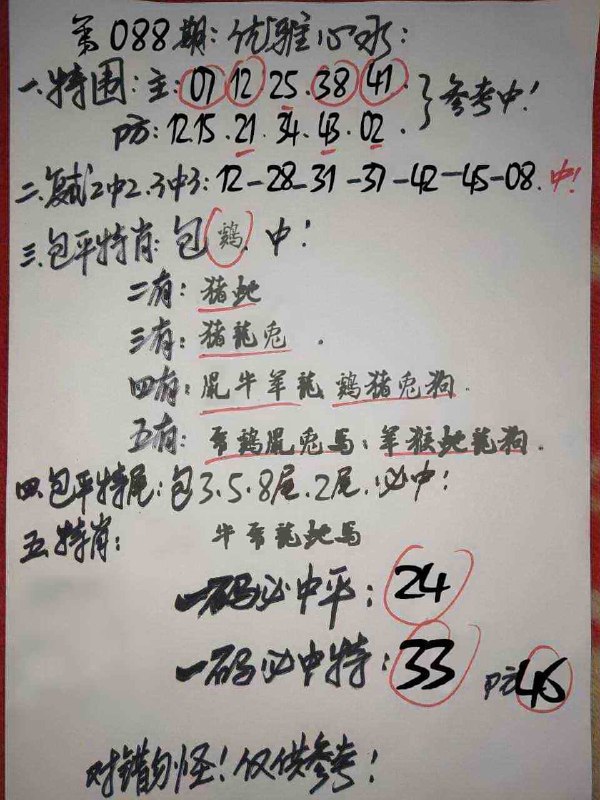 第088期:优雅心水:
一.特围:主:07 12 25.38 41. }参考中!
防:12.15.21.34.43.02.
二.复式2中2.3中3:12-28-31-37-42-45-08.中!
三.包平特肖:包鷄.中!
二有:猪蛇
三有:猪龍兎.
四有:鼠牛羊龍 鷄猪兎狗.
五有:虎鷄鼠兎馬:羊猴蛇龍狗.
四.包平特尾:包3.5.8尾.2尾.必中!
五.特肖: 牛虎龍蛇馬
一码必中平:24
一码必中特:33 防46
对错勿怪!仅供参考!